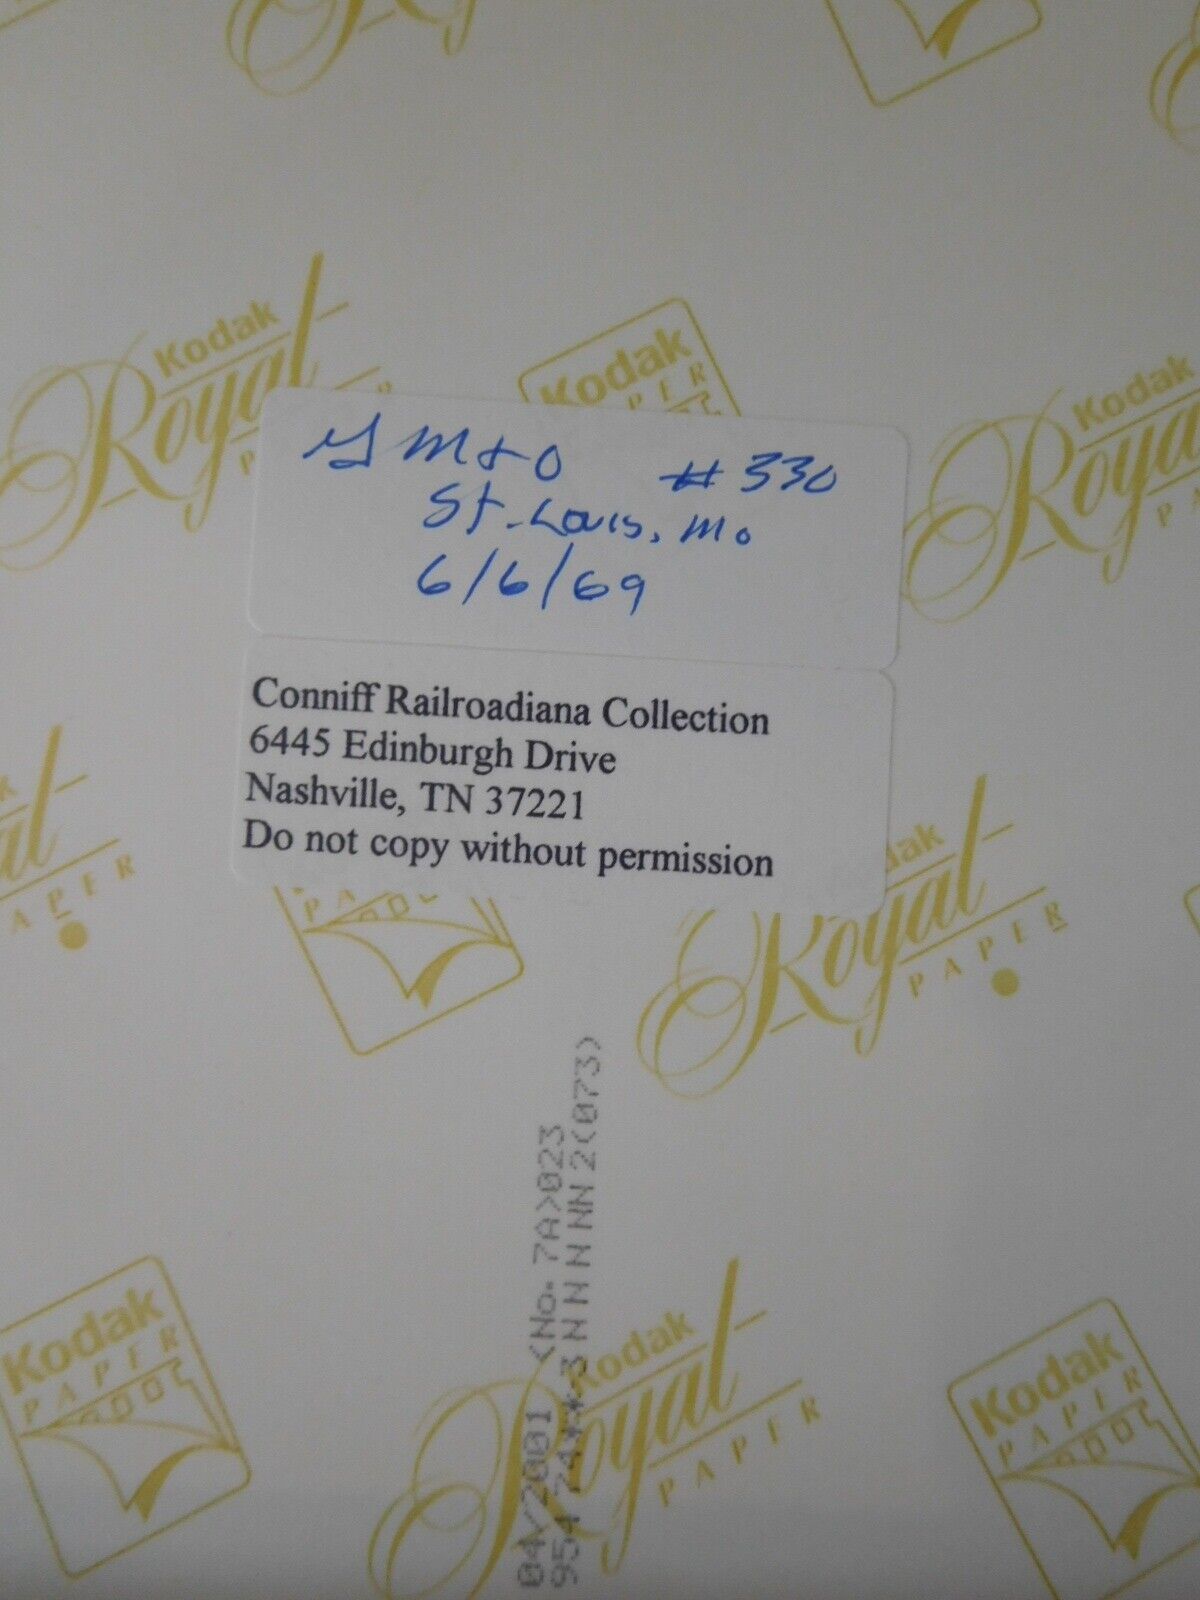 GM&O #330
St. Louis, Mo
6/6/69
Conniff Railroadiana Collection
6445 Edinburgh Drive
Nashville, TN 37221
Do not copy without permission
Kodak
Royal
Kodak
PAPER
Kodak
Royal
PAPER
Royal
PAPER
Kodak
PAPER
Kodak
Royal
PAPER
Kodak
PAPER
04/2001 <No. 7A>023
954 74 3 N N N NN 2(073)